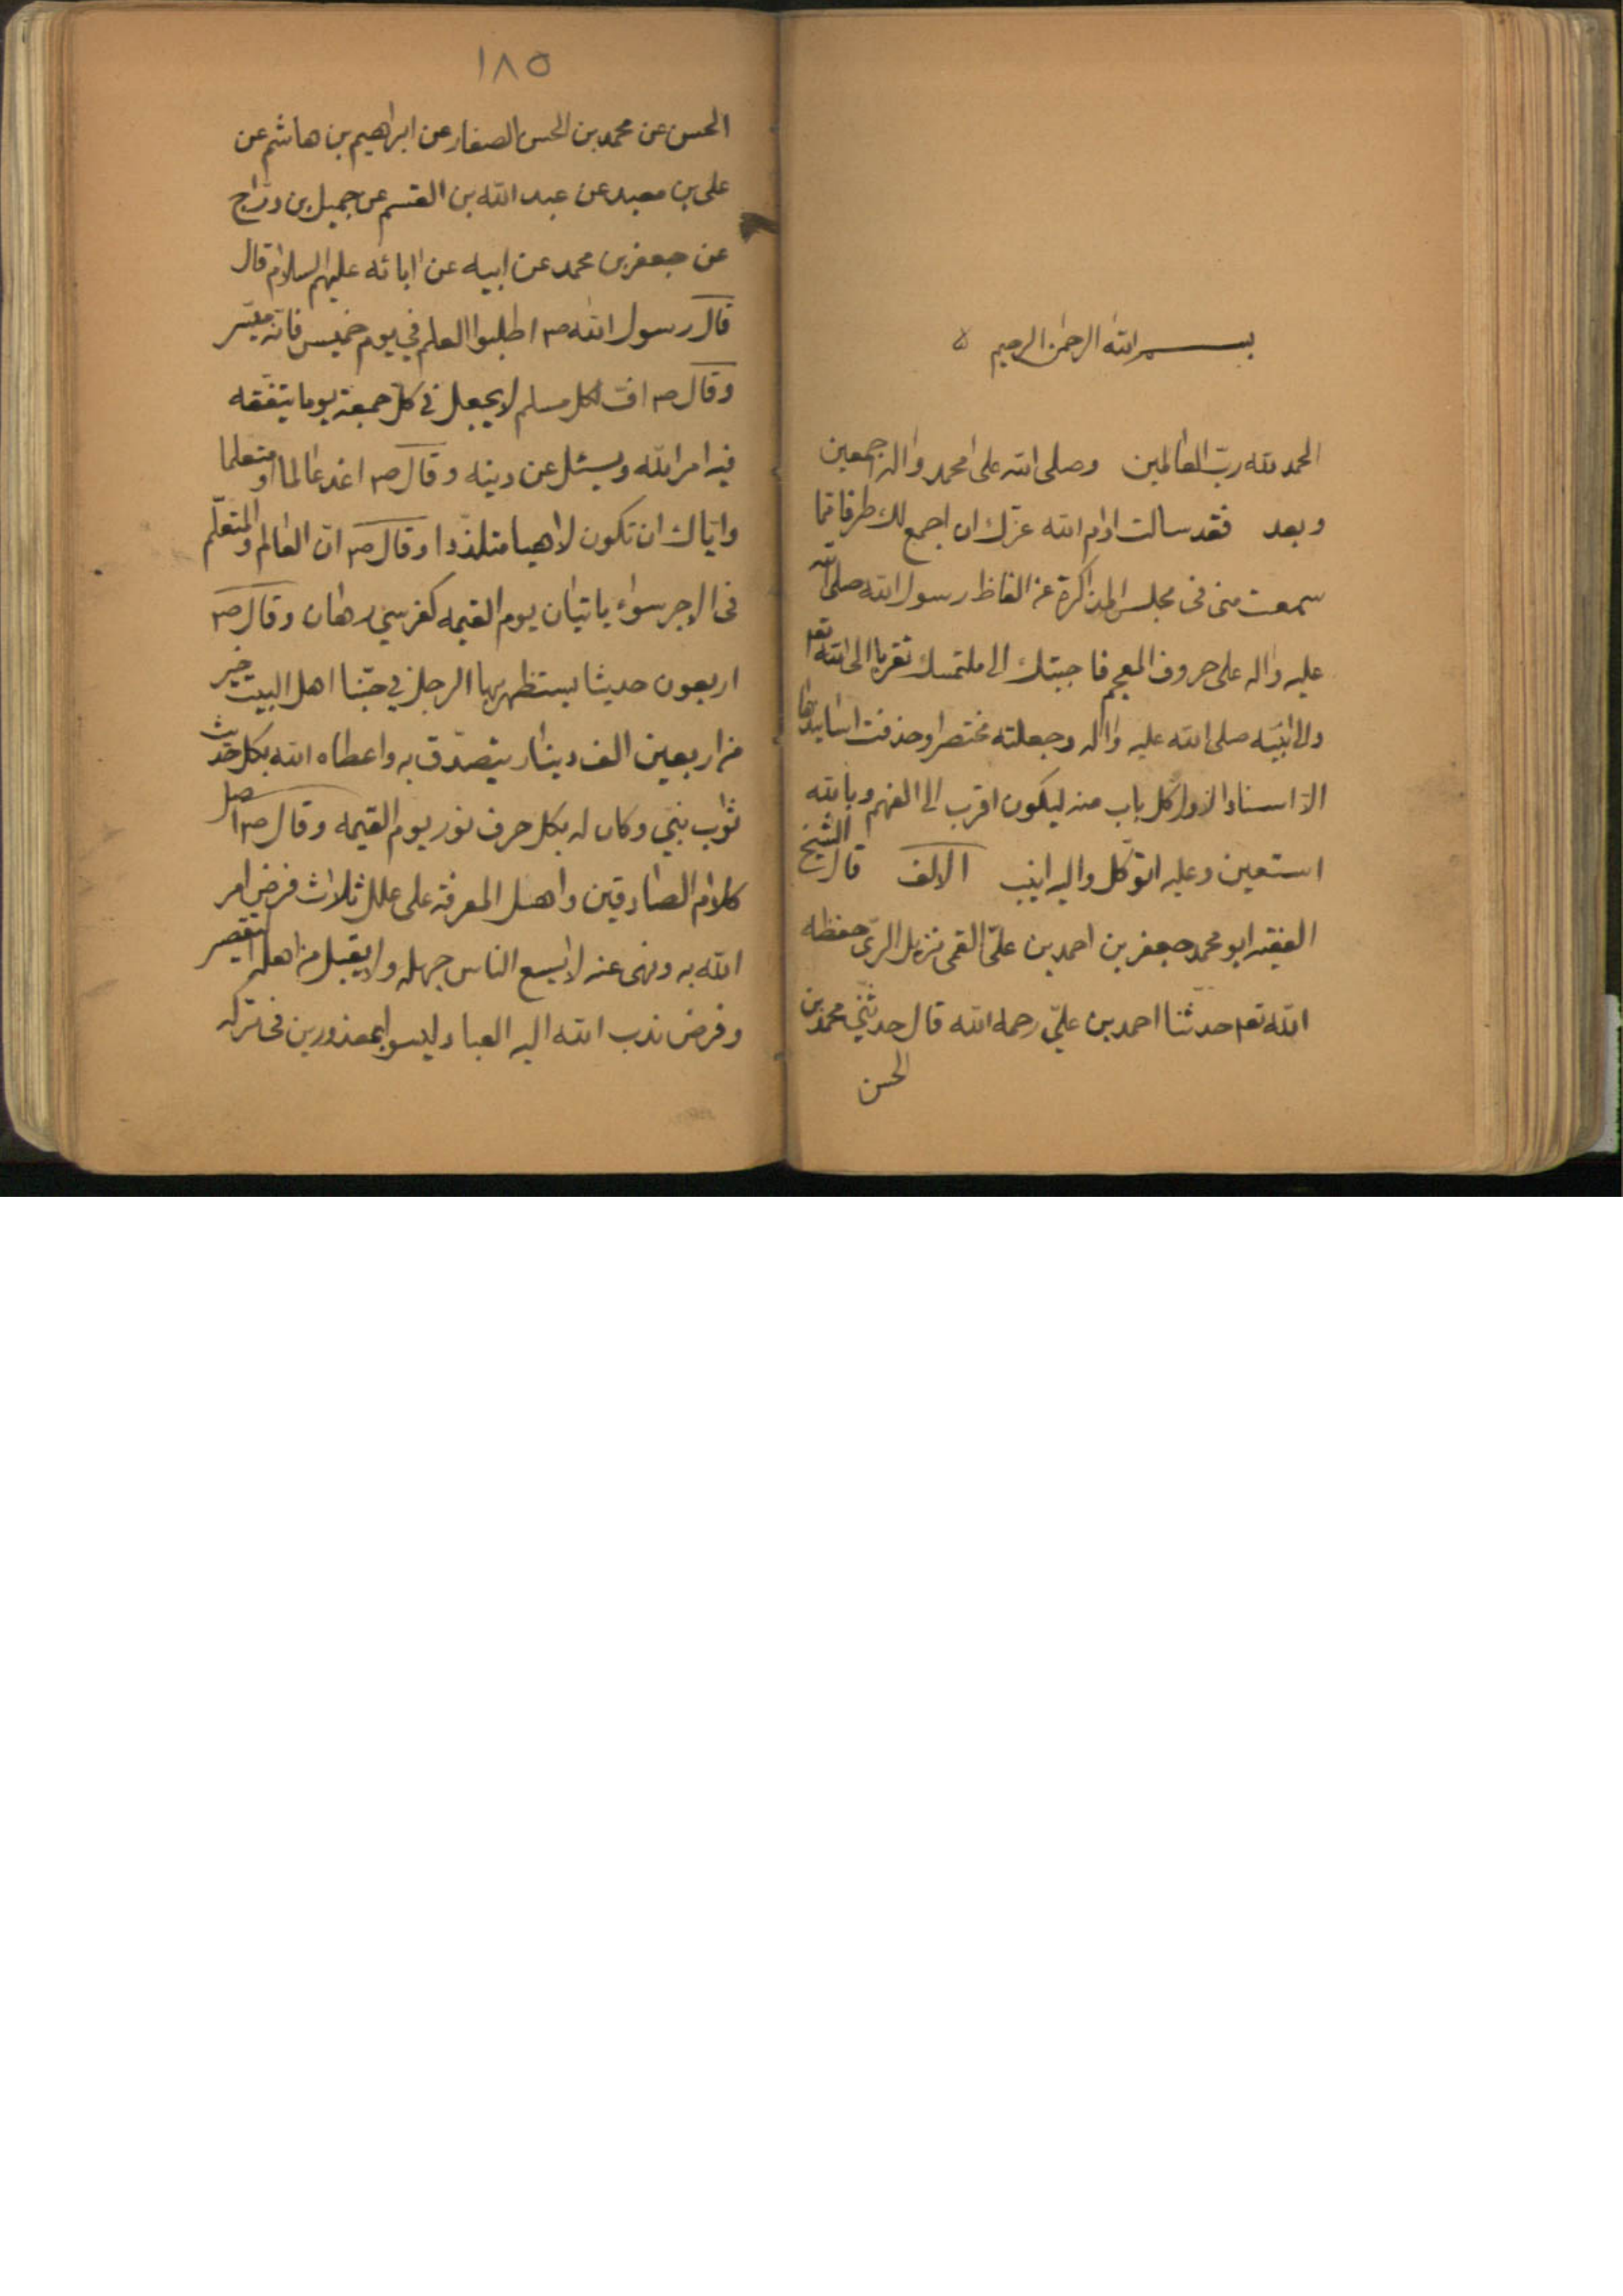 بسم الله الرحمن الرحيم
الحمد لله رب العالمين وصلى الله على محمد واله اجمعين
وبعد فقد سالت ادام الله عزك ان اجمع لك طرفا مما
سمعت منى فى مجلس المذاكرة عن الفاظ رسول الله صلى الله
عليه واله على حروف المعجم فاجبتك الى ملتمسك تقربا الى الله تعم
والى نبيه صلى الله عليه واله وجعلته مختصرا وحذفت اسانيدها
الا اسناد الاول كل باب منه ليكون اقرب الى الفهم وبالله
استعين وعليه اتوكل واليه انيب الالف قال الشيخ
الفقيه ابو محمد جعفر بن احمد بن علىّ القمى نزيل الرىّ حفظه
الله تعم حدثنا احمد بن علىّ رحمه الله قال حدثنى محمد بن
الحسن
١٨٥
الحسن عن محمد بن الحسن الصفار عن ابراهيم بن هاشم عن
على بن معبد عن عبد الله بن القسم عن جميل بن درّاج
عن جعفر بن محمد عن ابيه عن ابائه عليهم السلام قال
قال رسول الله ص اطلبوا العلم فى يوم خميس فانّه ميسّر
وقال ص افّ لكل مسلم لا يجعل فى كل جمعة يوما يتفقّه
فيه امر الله ويسئل عن دينه وقال ص اغد عالما او متعلما
وايّاك ان تكون لاهيا متلذّذا وقال ص انّ العالم والمتعلّم
فى الاجر سواء ياتيان يوم القيمه كفرسي رهان وقال ص
اربعون حديثا يستظهر بها الرجل فى حبّنا اهل البيت خير
من اربعين الف دينار يتصدّق به واعطاه الله بكل حديث
ثواب نبىّ وكان له بكل حرف نور يوم القيمه وقال ص اصل
كلام الصادقين واهل المعرفة على علل ثلاث فرض امر
الله به ونهى عنه لا يسع الناس جهله ولا يقبل من اهله التقصير
وفرض ندب الله اليه العباد ليسوا بمعذورين فى تركه